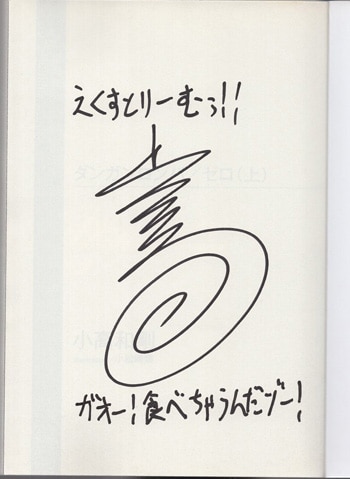 えくすとりーむっ!!
ダンガンロンパ ゼロ［上］
小高和剛
ガオー!食べちゃうんだゾー!